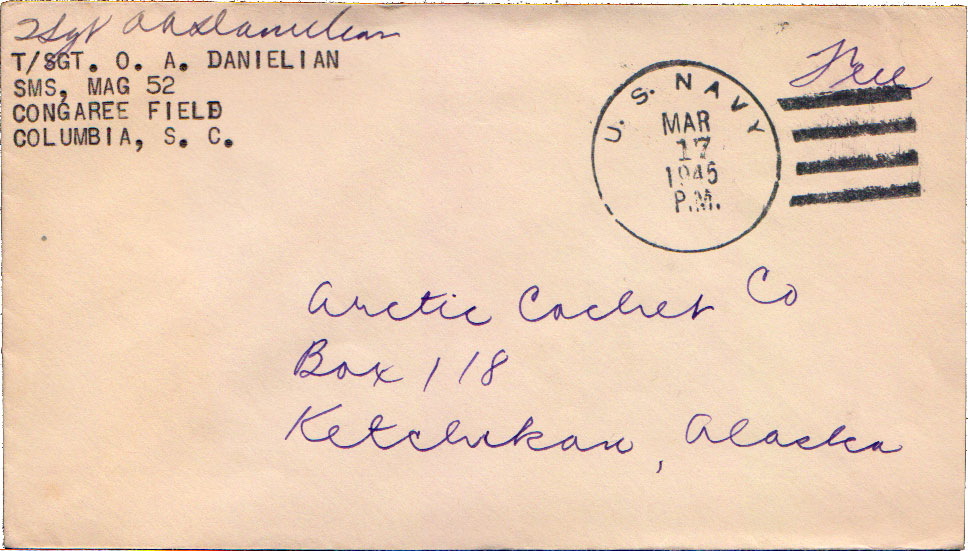 TSgt O A Danielian
T/SGT. O. A. DANIELIAN
SMS, MAG 52
CONGAREE FIELD
COLUMBIA, S. C.
U. S. NAVY
MAR
17
1945
P.M.
Free
Arctic Cachet Co
Box 118
Ketchikan, Alaska